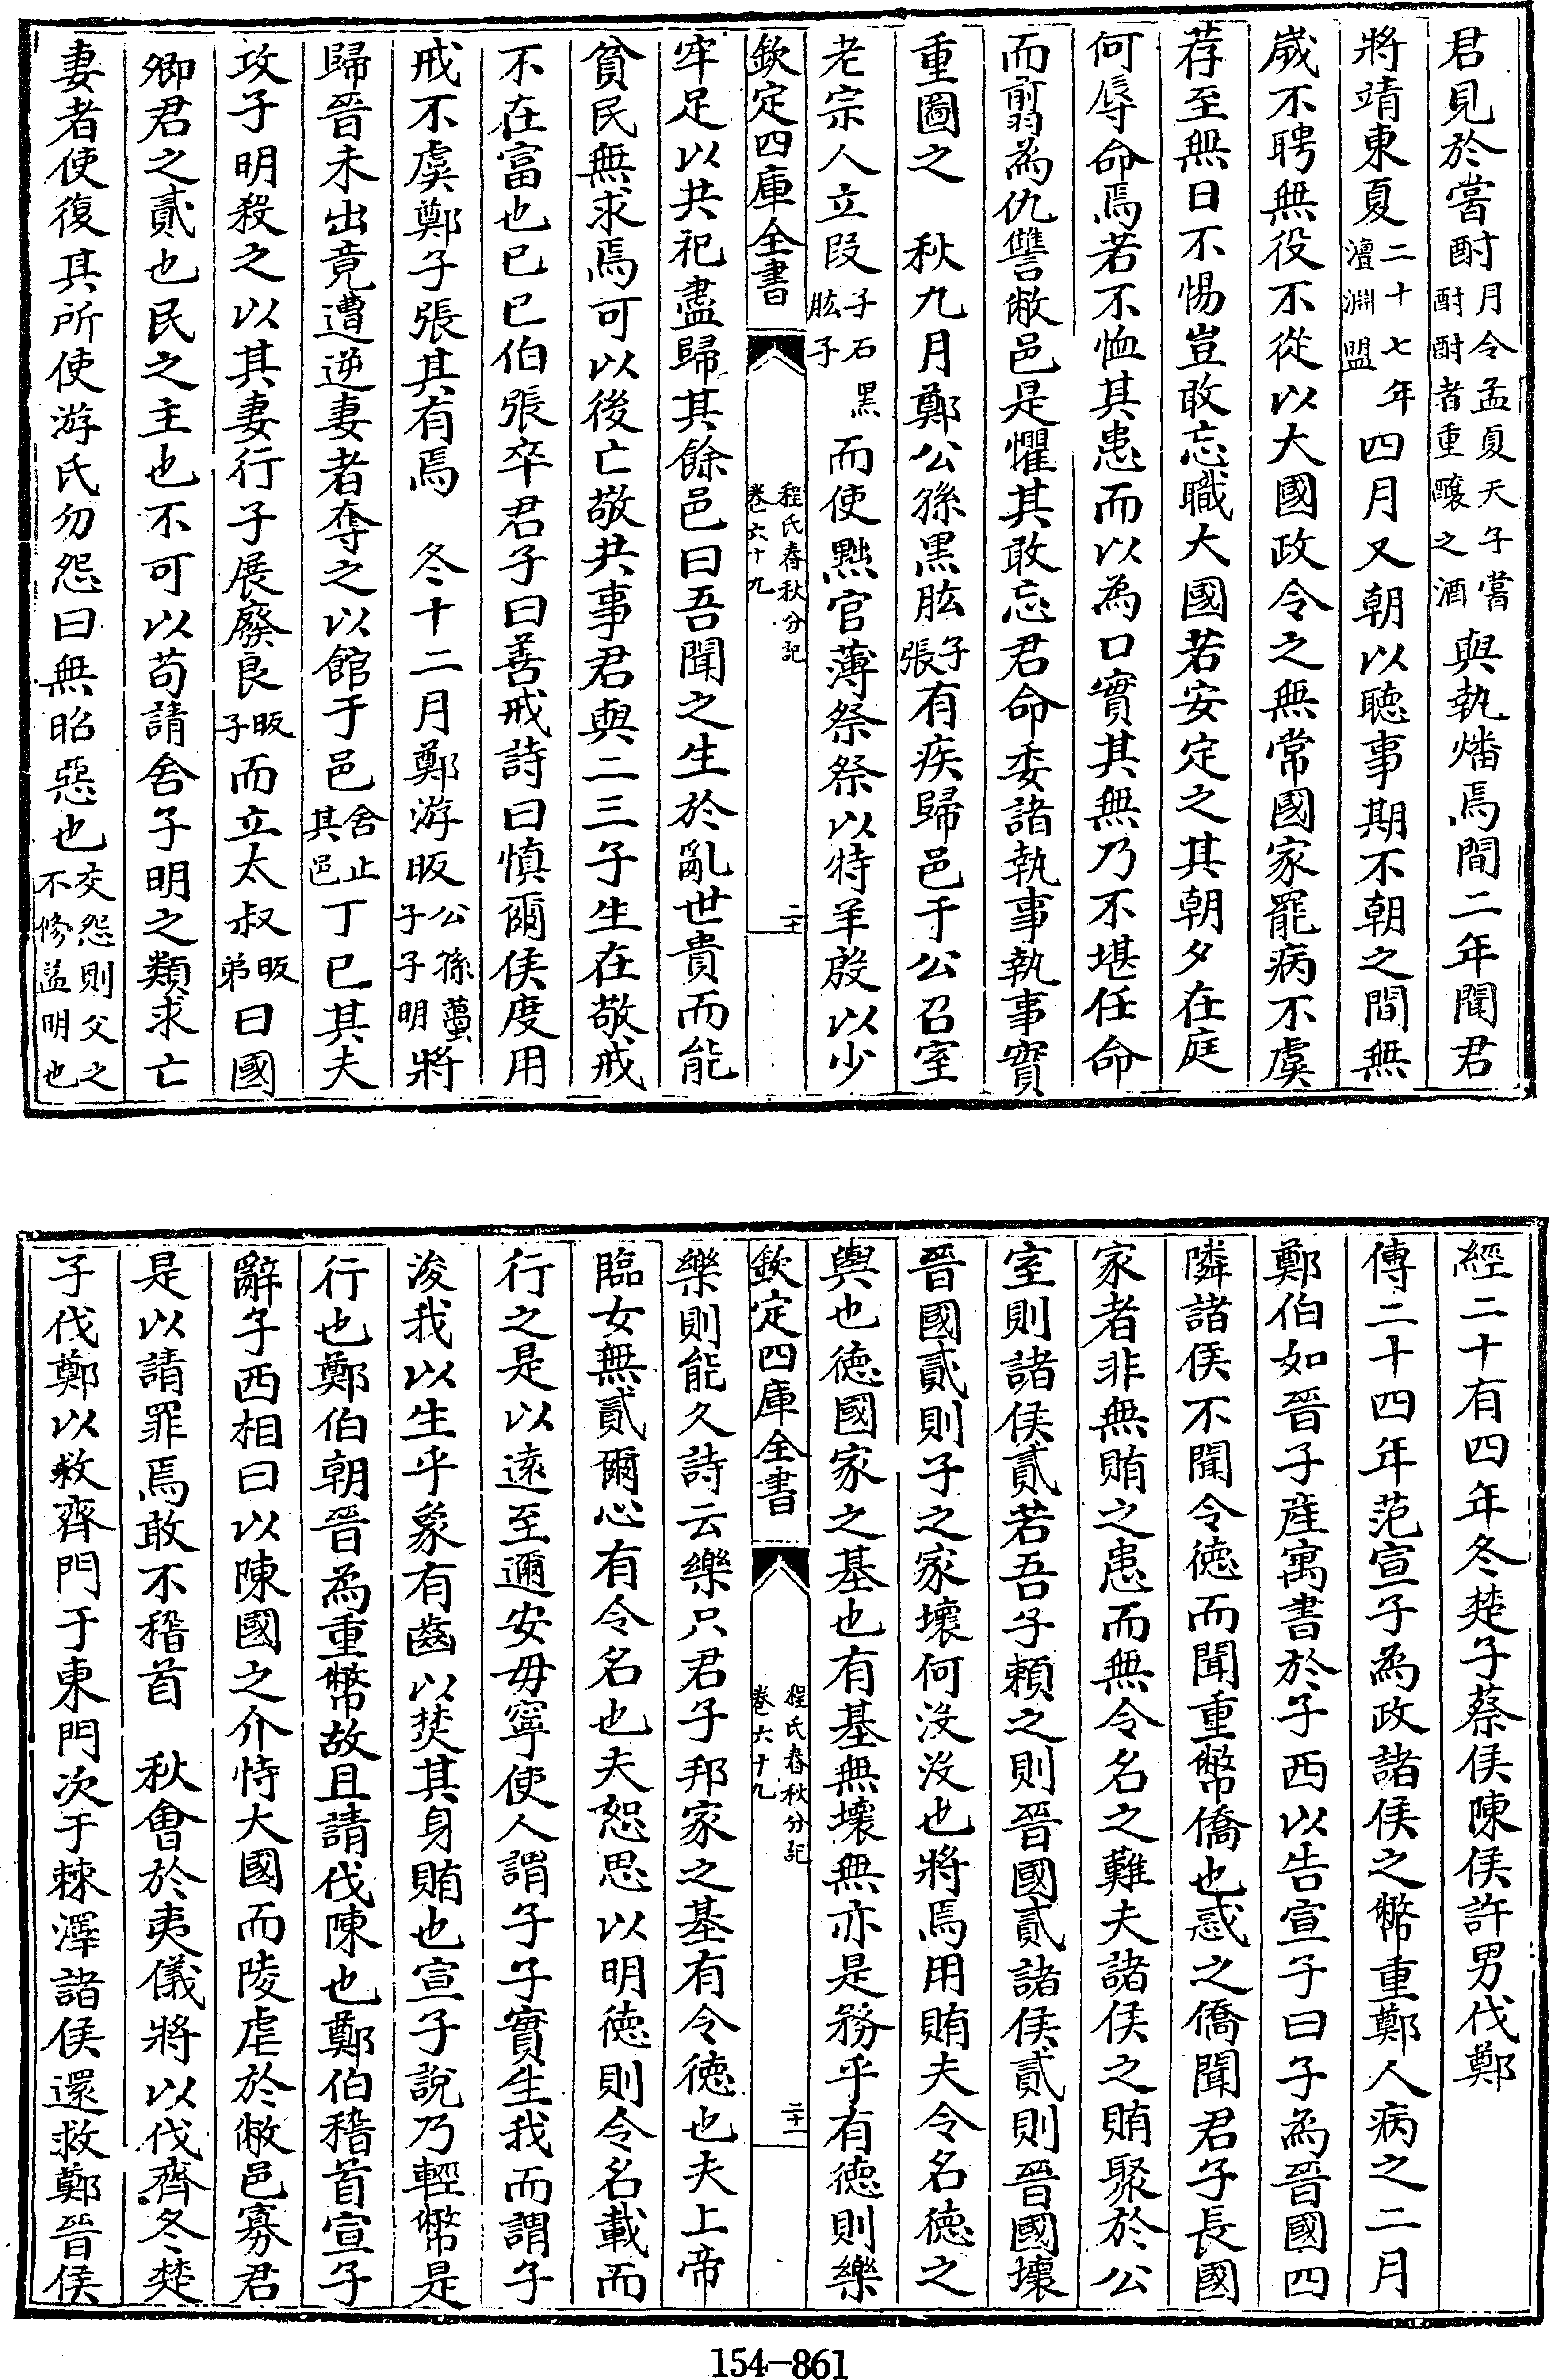 君見於嘗酎月令孟夏天子嘗酎酎者重釀之酒與執燔焉間二年聞君
將靖東夏二十七年澶淵盟四月又朝以聽事期不朝之間無
歲不聘無役不從以大國政令之無常國家罷病不虞
荐至無日不惕豈敢忘職大國若安定之其朝夕在庭
何辱命焉若不恤其患而以為口實其無乃不堪任命
而翦為仇讐敝邑是懼其敢忘君命委諸執事執事實
重圖之　秋九月鄭公孫黑肱子張有疾歸邑于公召室
老宗人立段子石黑肱子而使黜官薄祭祭以特羊殷以少
欽定四庫全書　程氏春秋分記卷六十九　二十
牢足以共祀盡歸其餘邑曰吾聞之生於亂世貴而能
貧民無求焉可以後亡敬共事君與二三子生在敬戒
不在富也已巳伯張卒君子曰善戒詩曰慎爾侯度用
戒不虞鄭子張其有焉　冬十二月鄭游昄公孫蠆子子明將
歸晉未出竟遭逆妻者奪之以館于邑舍止其邑丁巳其夫
攻子明殺之以其妻行子展廢良昄子而立太叔昄弟曰國
卿君之貳也民之主也不可以苟請舍子明之類求亡
妻者使復其所使游氏勿怨曰無昭惡也交怨則父之不修益明也
經二十有四年冬楚子蔡侯陳侯許男伐鄭
傳二十四年范宣子為政諸侯之幣重鄭人病之二月
鄭伯如晉子産寓書於子西以告宣子曰子為晉國四
隣諸侯不聞令德而聞重幣僑也惑之僑聞君子長國
家者非無賄之患而無令名之難夫諸侯之賄聚於公
室則諸侯貳若吾子賴之則晉國貳諸侯貳則晉國壞
晉國貳則子之家壞何没没也將焉用賄夫令名德之
輿也德國家之基也有基無壞無亦是務乎有德則樂
欽定四庫全書　程氏春秋分記卷六十九　二十一
樂則能久詩云樂只君子邦家之基有令德也夫上帝
臨女無貳爾心有令名也夫恕思以明德則令名載而
行之是以遠至邇安毋寧使人謂子子實生我而謂子
浚我以生乎象有齒以焚其身賄也宣子說乃輕幣是
行也鄭伯朝晉為重幣故且請伐陳也鄭伯稽首宣子
辭子西相曰以陳國之介恃大國而陵虐於敝邑寡君
是以請罪焉敢不稽首　秋會於夷儀將以伐齊冬楚
子伐鄭以救齊門于東門次于棘澤諸侯還救鄭晉侯
154-861